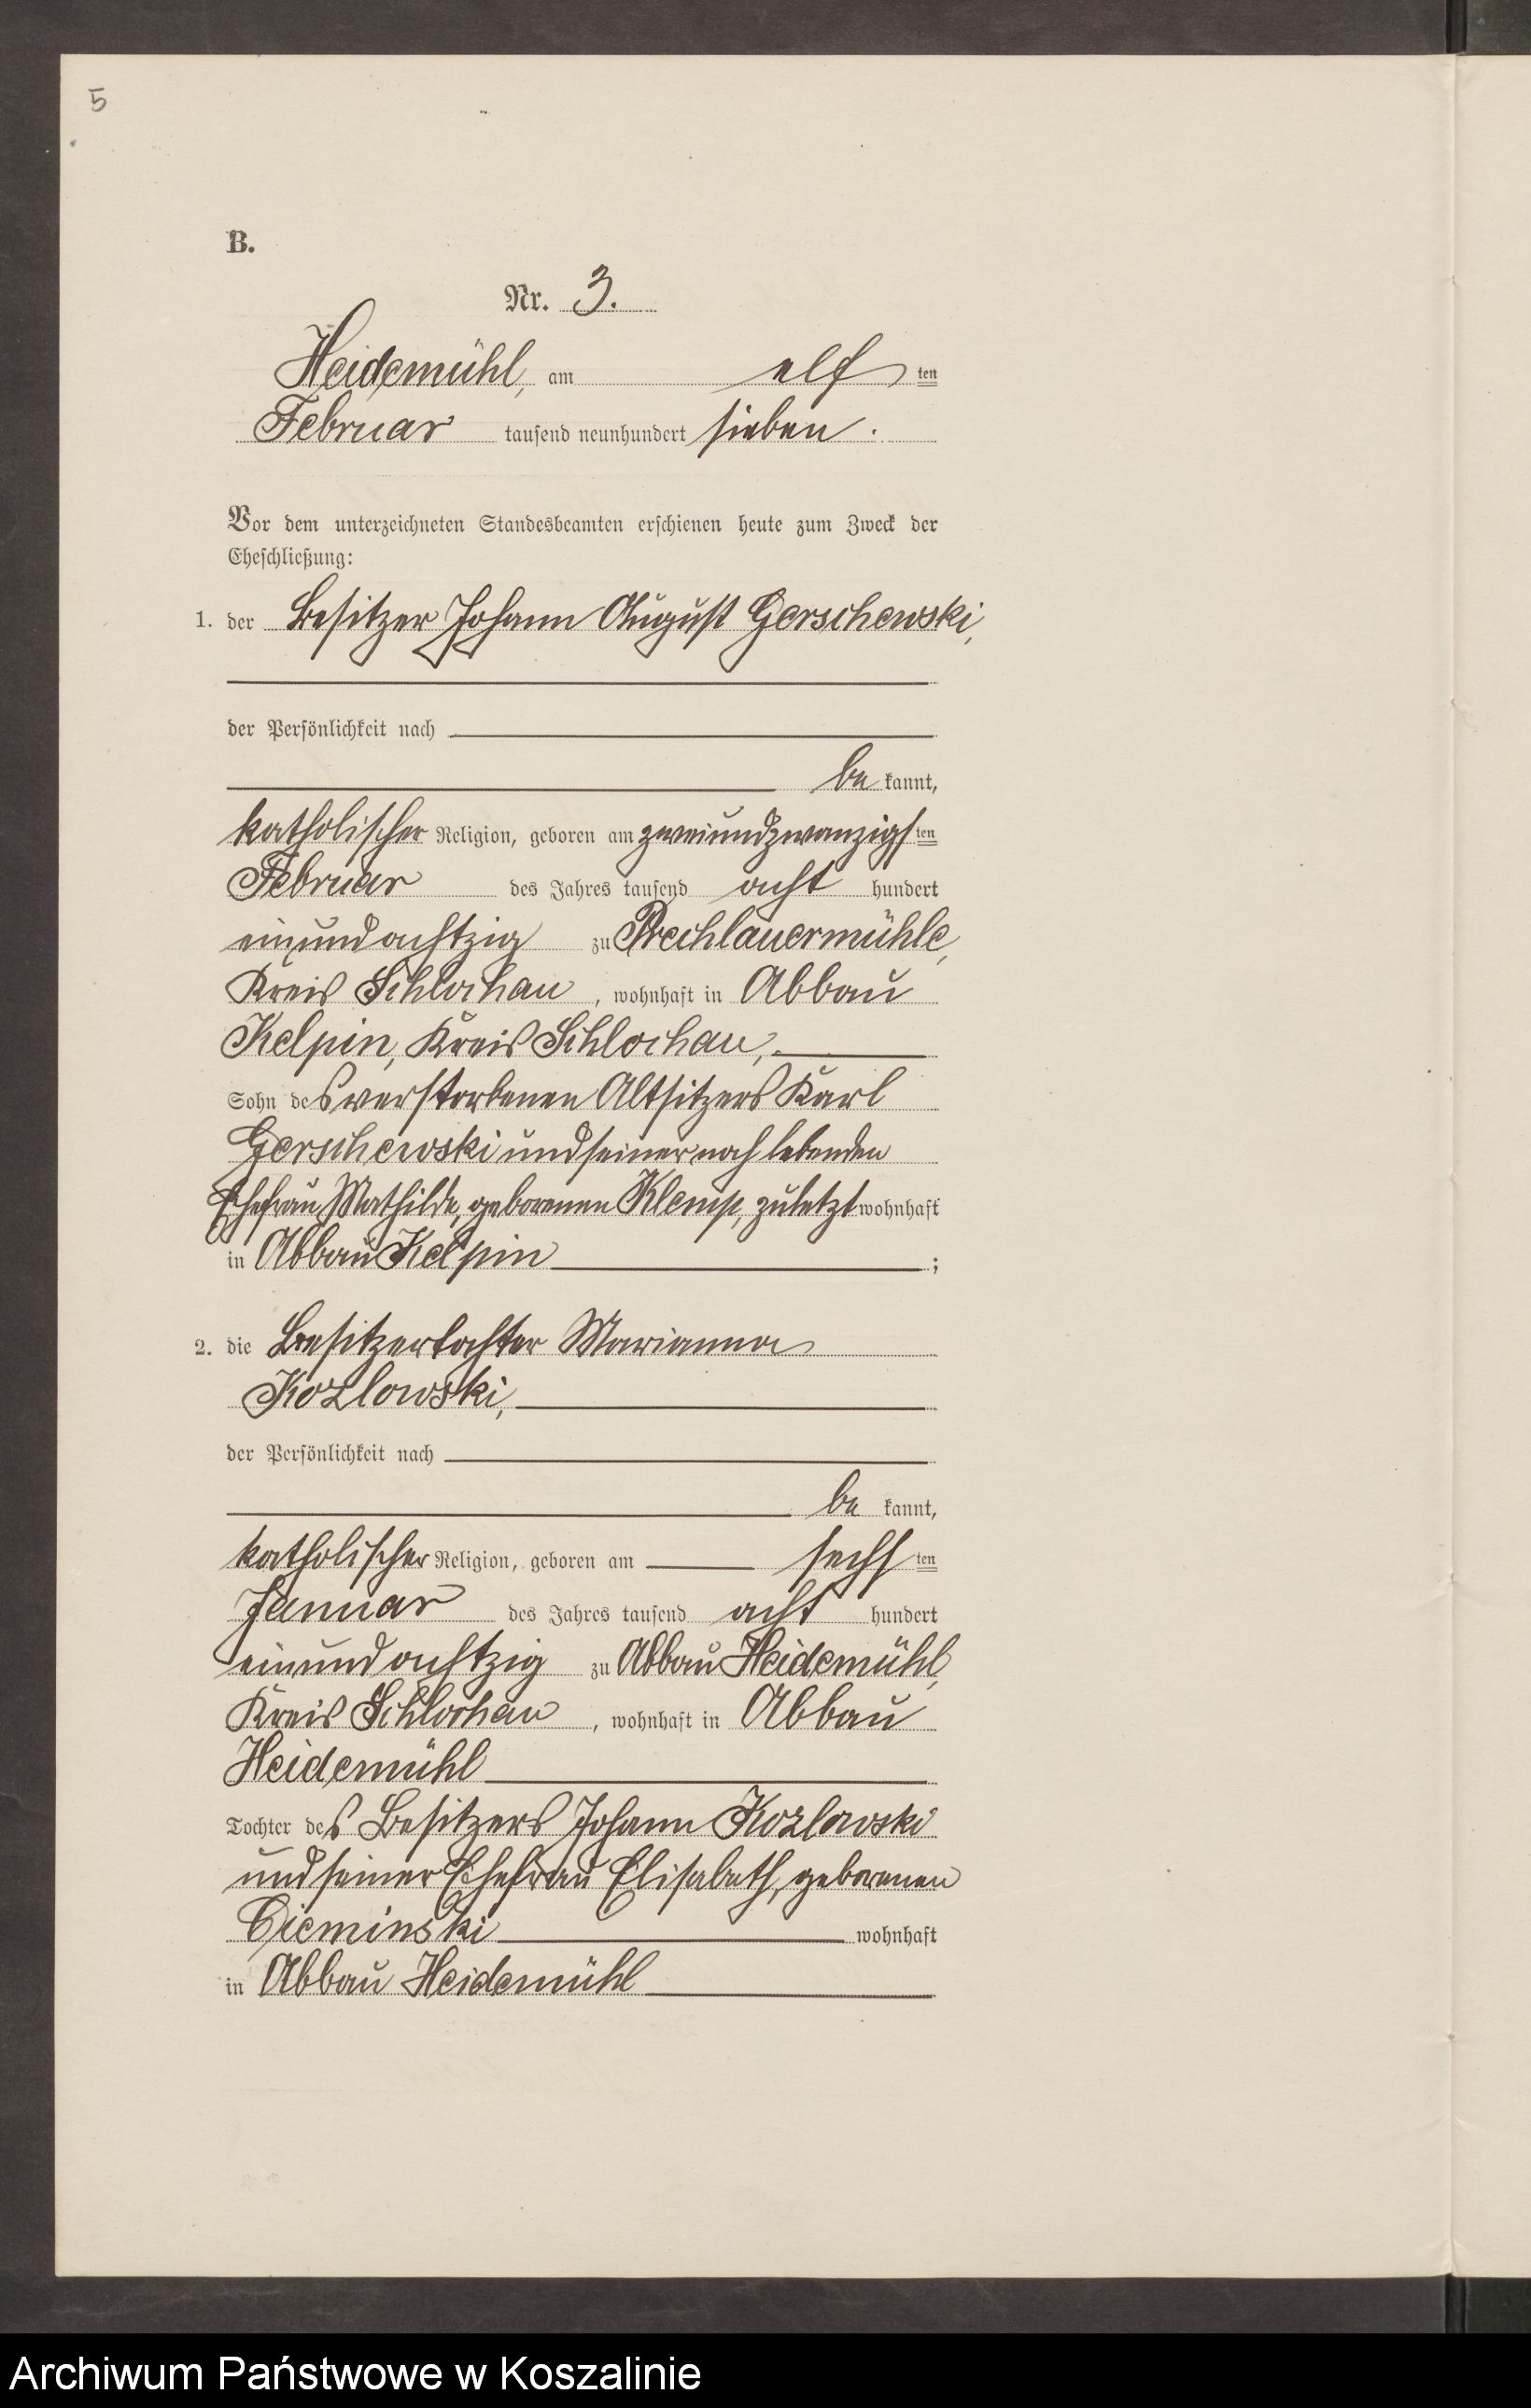 5
B.
Nr. 3.
Heidemühl, am elf ten
Februar tausend neunhundert sieben.
Vor dem unterzeichneten Standesbeamten erschienen heute zum Zweck der
Eheschließung:
1. der Besitzer Johann August Gerschewski,
der Persönlichkeit nach
be kannt,
katholischer Religion, geboren am zweiundzwanzigs ten
Februar des Jahres tausend acht hundert
einundachtzig zu Prechlauermühle,
Kreis Schlochau, wohnhaft in Abbau
Kelpin, Kreis Schlochau,
Sohn des verstorbenen Altsitzers Karl
Gerschewski und seiner noch lebenden
Ehefrau Mathilde, geborenen Klemp, zuletzt wohnhaft
in Abbau Kelpin ;
2. die Besitzertochter Marianna
Kozlowski,
der Persönlichkeit nach
be kannt,
katholischer Religion, geboren am sechs ten
Januar des Jahres tausend acht hundert
einundachtzig zu Abbau Heidemühl,
Kreis Schlochau, wohnhaft in Abbau
Heidemühl
Tochter des Besitzers Johann Kozlowski
und seiner Ehefrau Elisabeth, geborenen
Cieminski wohnhaft
in Abbau Heidemühl
Archiwum Państwowe w Koszalinie